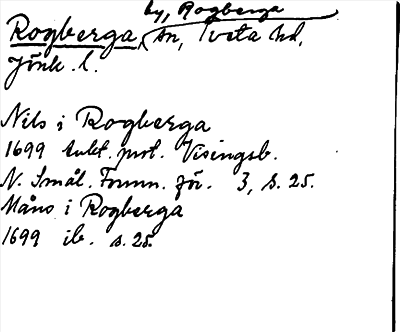 by, Rogberga
Rogberga, sn, Tveta hd,
Jönk. l.
Nils i Rogberga
1699 Aukt. prot. Visingsb.
N. Smål. Fornm. för. 3, s. 25.
Måns i Rogberga
1699 ib. s. 25.